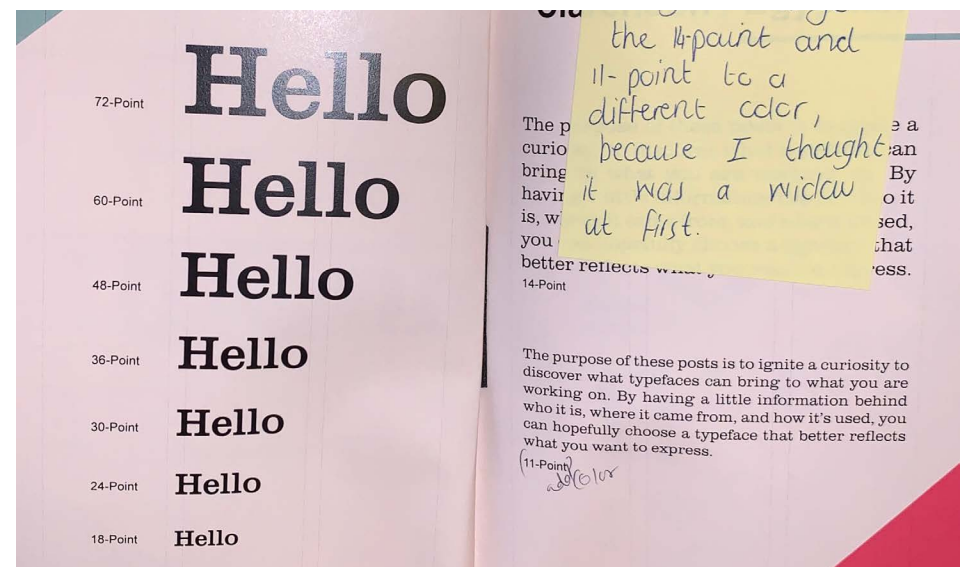 72-Point Hello
60-Point Hello
48-Point Hello
36-Point Hello
30-Point Hello
24-Point Hello
18-Point Hello
the 14-point and
11-point to a
different color,
because I thought
it was a widow
at first.
The p e a
curio an
bring By
havin o it
is, w sed,
you that
better reflects ess.
14-Point
The purpose of these posts is to ignite a curiosity to
discover what typefaces can bring to what you are
working on. By having a little information behind
who it is, where it came from, and how it's used, you
can hopefully choose a typeface that better reflects
what you want to express.
(11-Point)
add color